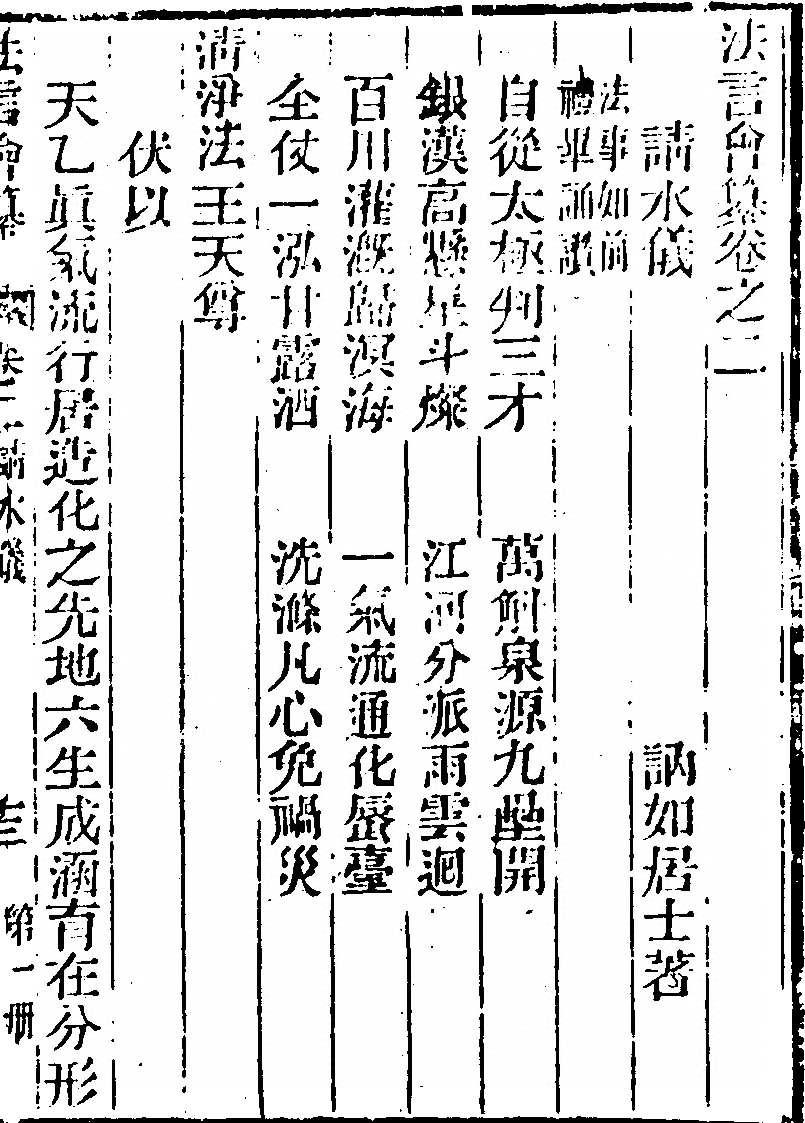 法言會纂卷之二
請水儀 訥如居士著
法事如前
禮畢誦讚
自從太極判三才 萬斛泉源九壘開
銀漢高懸星斗燦 江河分派雨雲迴
百川灌溉歸溟海 一氣流通化蜃臺
全仗一泓甘露洒 洗滌凡心免禍災
清淨法王天尊
伏以
天乙眞氣流行居造化之先地六生成涵育在分形
法言會纂 卷二請水儀 第一册